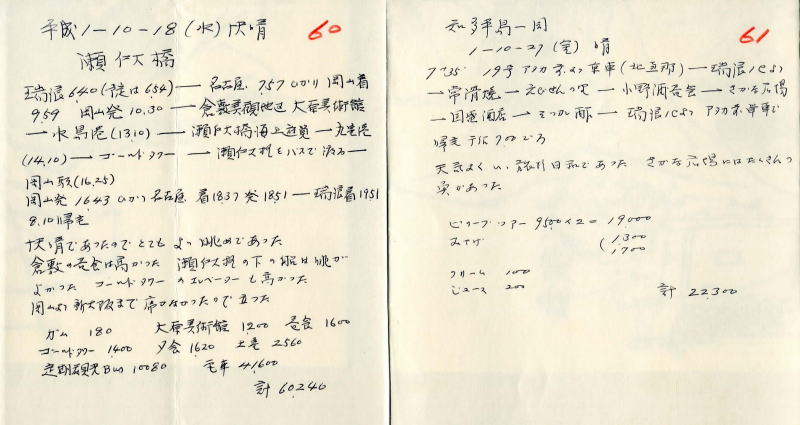 平成1-10-18(水)快晴
60
瀬戸大橋
瑞浪640(帰は654)―名古屋 757ひかり 岡山着
959 岡山発10.30―倉敷美観地区 大原美術館
―水島港(1310)―瀬戸大橋海上遊覧―児島港
(14,10)―ゴールドタワー―瀬戸大橋をバスで渡る―
岡山駅(16.25)
岡山発1643ひかり名古屋着1837発1851―瑞浪着1951
8.10帰宅
快晴であったのでとてもよい眺めであった
倉敷の昼食は高かった 瀬戸大橋の下の船は眺が
よかった ゴールドタワーのエレベーターも高かった
岡山より新大阪まで席がなかったので立った
ガム 180 大原美術館 1200 昼食 1600
ゴールドタワー 1400 夕食 1620 土産 2560
定期観光Bus 10080 電車 41600
計 60240
知多半島一周
61
1-10-27(金)晴
7°35' 19号 より乗車(北恵那)―瑞浪ICより
―常滑焼―えびせんの里―小野浦昼食―さかな広場
―国盛酒店―みつかん酢―瑞浪ICより 乗車で
帰宅 7.00ごろ
天気よくい、旅行日和であった さかな広場にはたくさんの
魚があった
ツアー 9500×2=19,000
みやげ (1,300
1,700
クリーム 100
ジュース 200 計 22,300